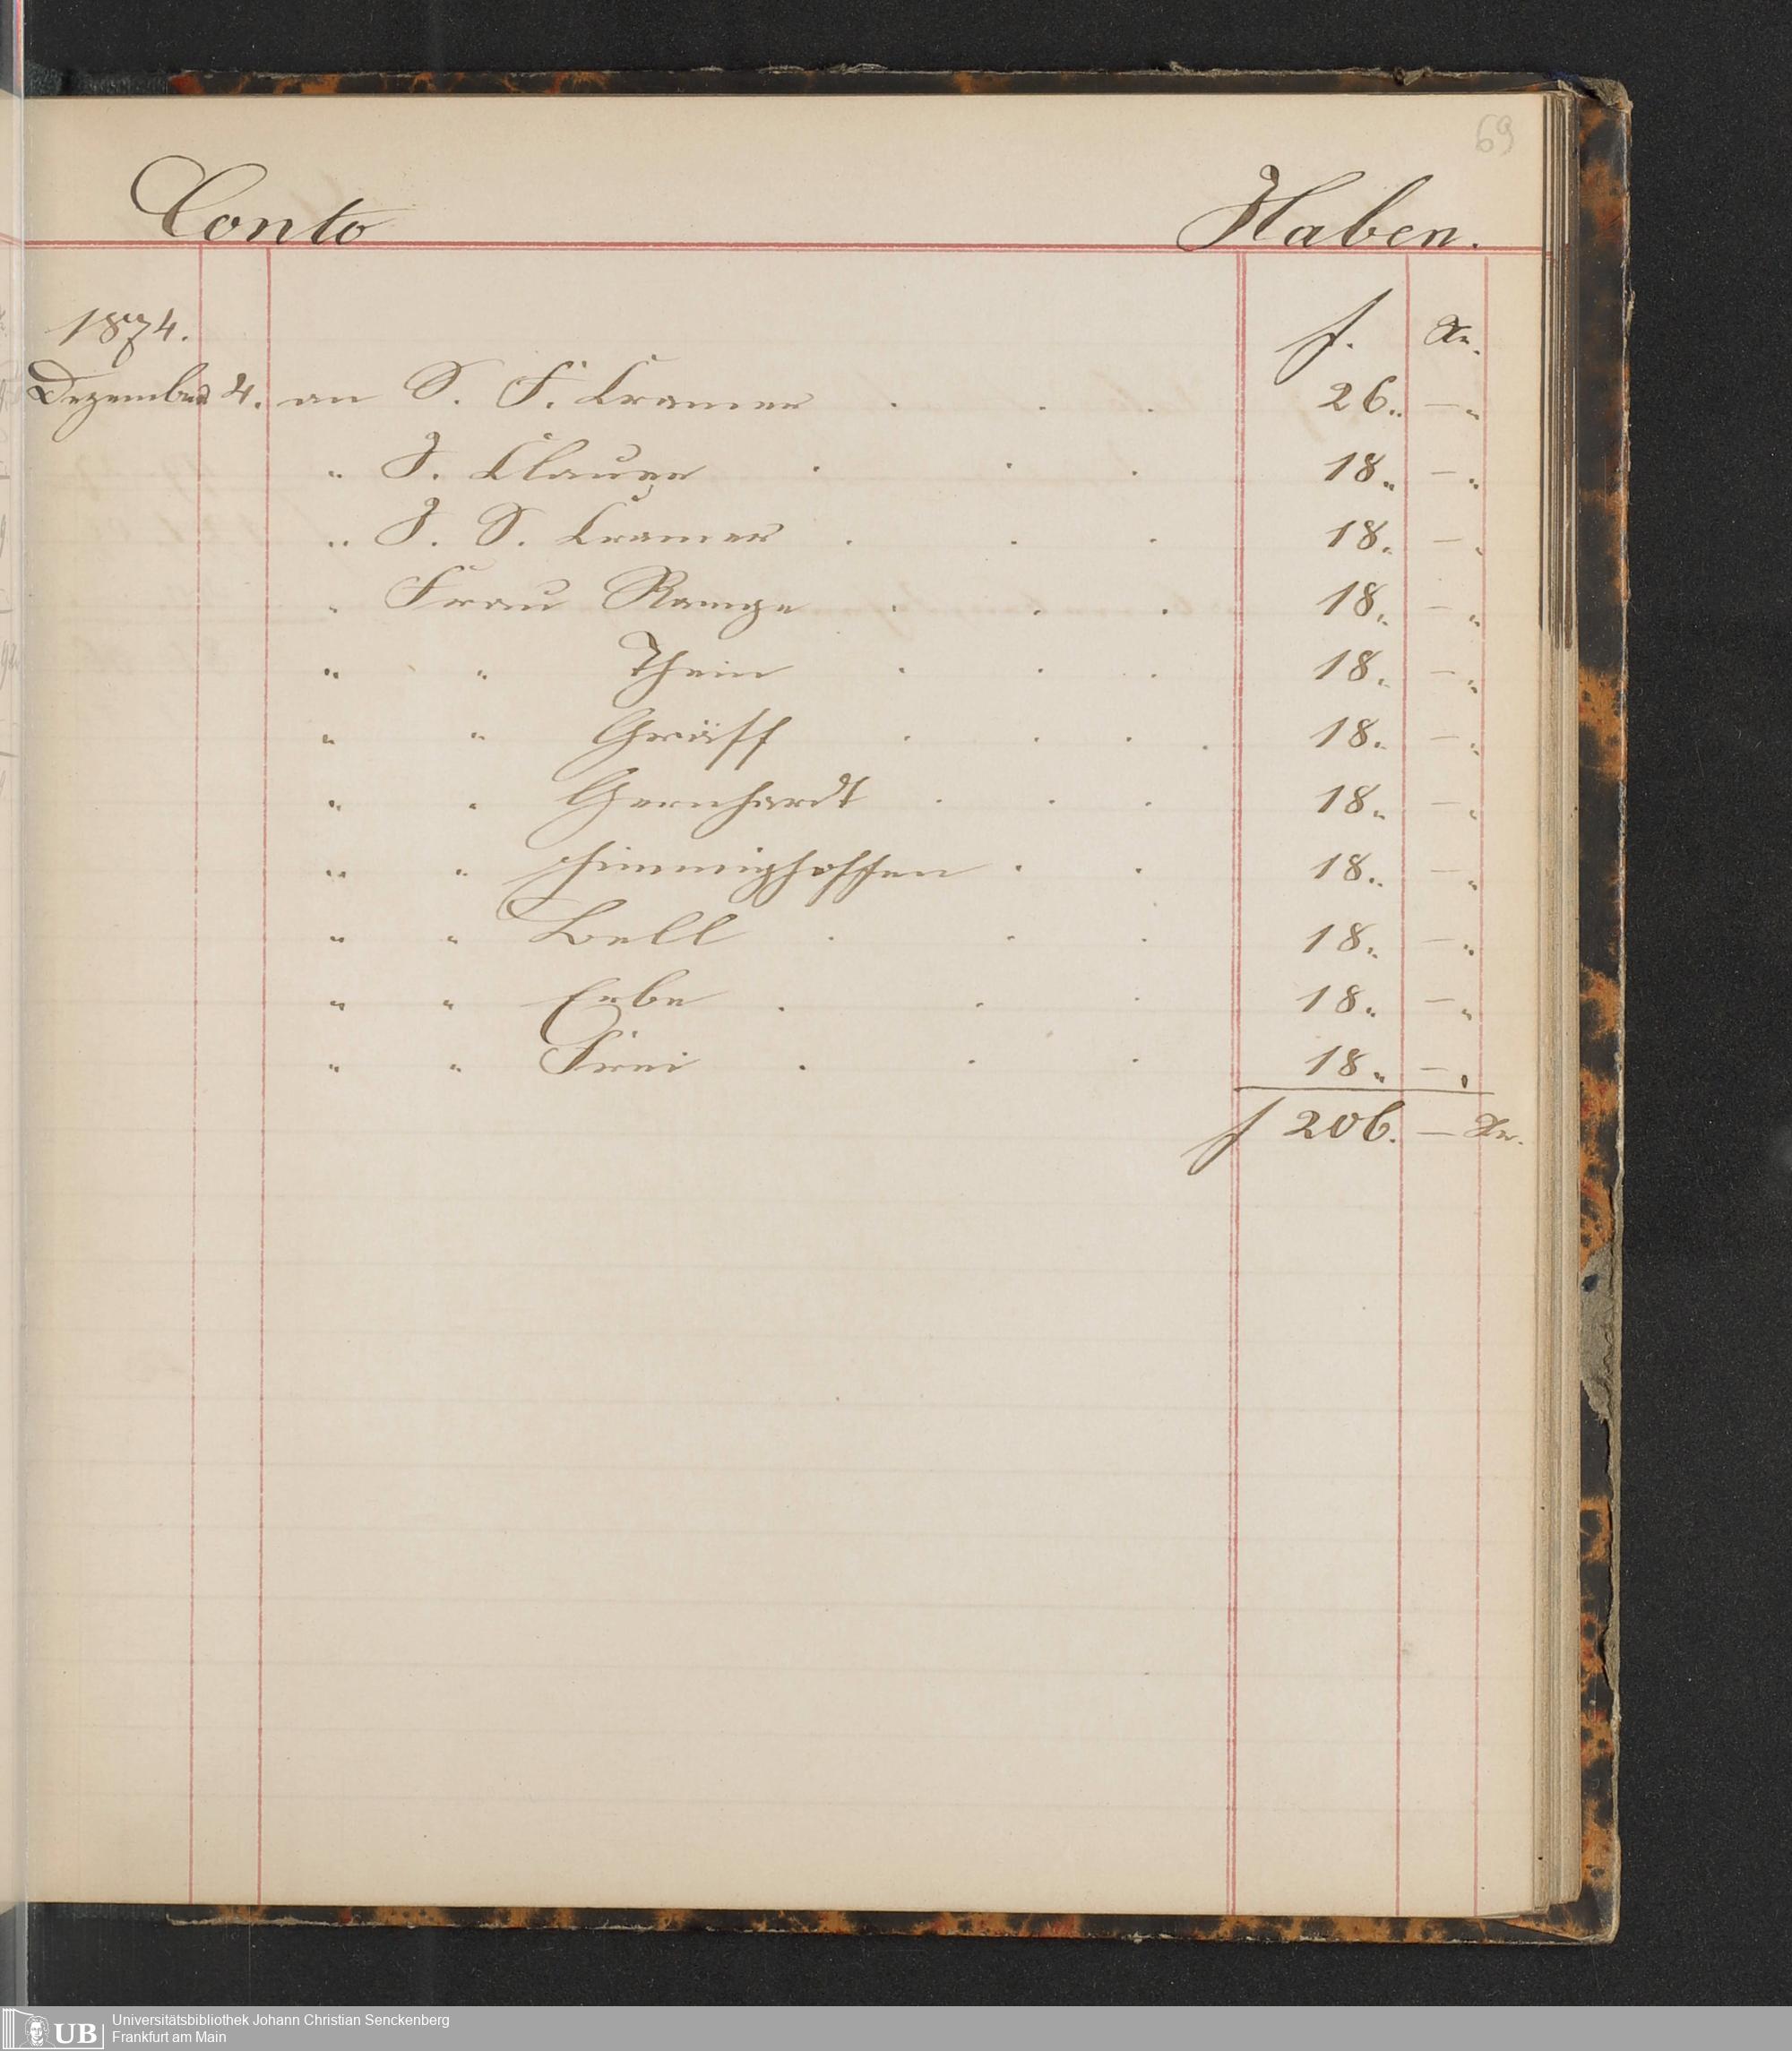 69
Conto Haben.
1874. f. Xr.
Dezember 4. an S. F. Cramer . . . 26.. — „
„ J. Clauer . . . 18 „ — „
„ J. S. Cramer . . . 18 „ — „
„ Frau Rampe . . . 18 „ — „
„ „ Thein . . . 18 „ — „
„ „ Gräff . . . . 18 „ — „
„ „ Gernhardt . . . 18 „ — „
„ „ Himmighoffen . . 18 „ — „
„ „ Bell . . . 18 „ — „
„ „ Erbe . . . 18 „ — „
„ „ Frei . . . 18 „ — „
f 206. — Xr.
UB Universitätsbibliothek Johann Christian Senckenberg
Frankfurt am Main